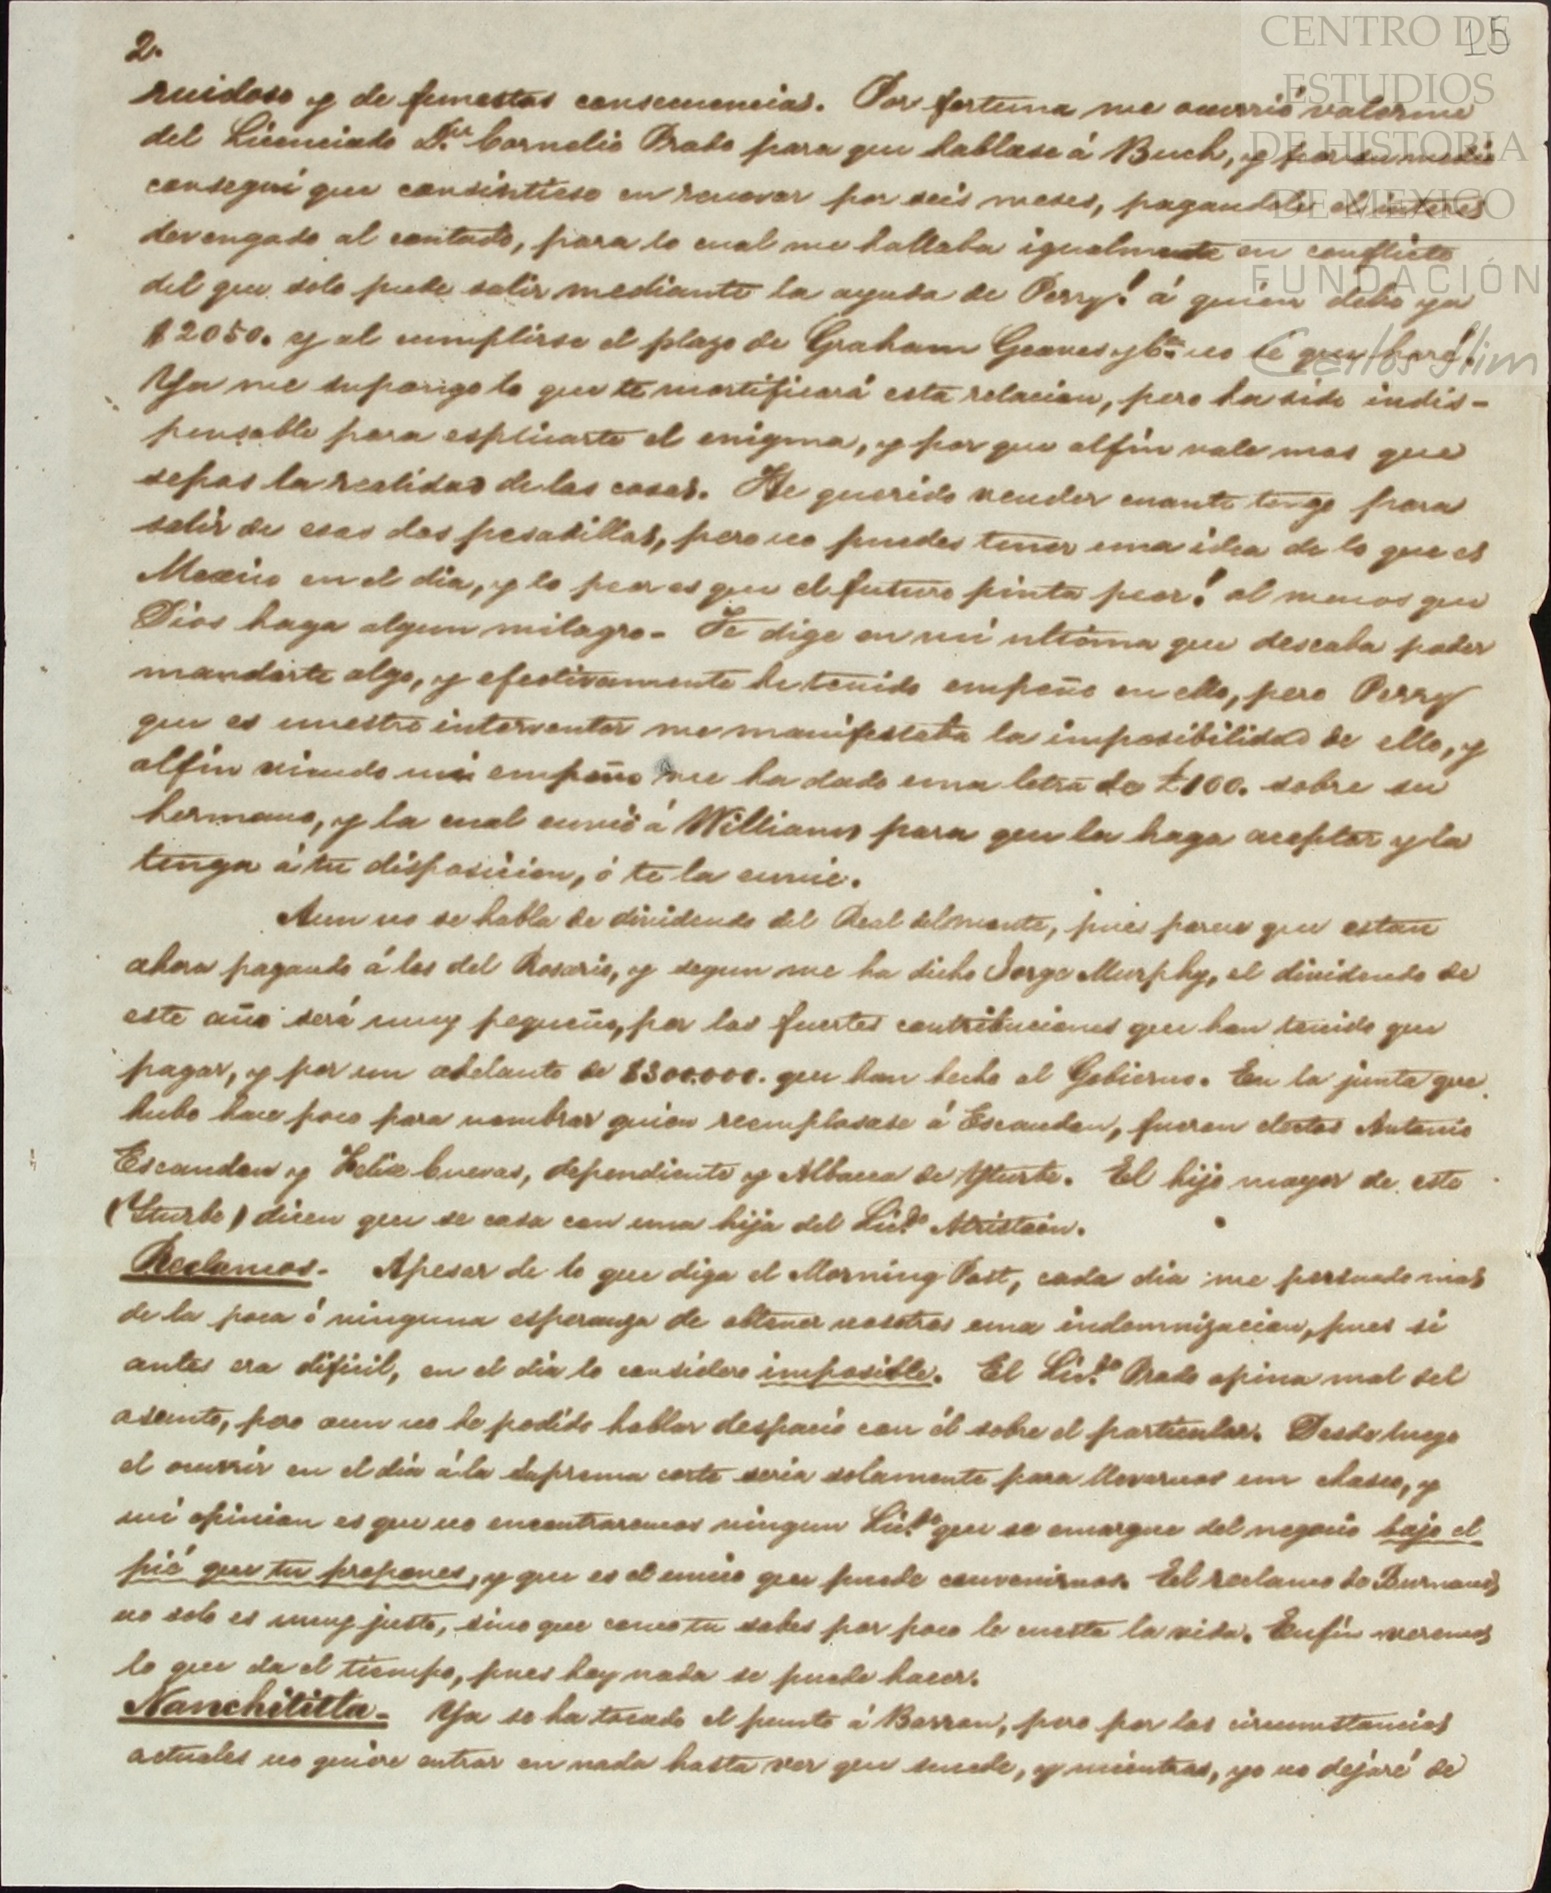 2.
15
CENTRO DE
ESTUDIOS
DE HISTORIA
DE MEXICO
FUNDACIÓN
Carlos Slim
ruidoso y de funestas consecuencias. Por fortuna me ocurrió valerme
del Licenciado Dn. Cornelio Prado para que hablase á Buch, y por su medio
conseguí que consintiese en renovar por seis meses, pagandole el interes
devengado al contado, para lo cual me hallaba igualmente en conflicto
del que solo pude salir mediante la ayuda de Perry! á quien debo ya
$2050. y al cumplirse el plazo de Graham Geaves y Ca. no sé que haré!
Ya me supongo lo que te mortificará esta relacion, pero ha sido indis-
pensable para esplicarte el enigma, y por que alfin vale mas que
sepas la realidad de las cosas. He querido vender cuanto tengo para
salir de esas dos pesadillas, pero no puedes tener una idea de lo que es
Mexico en el dia, y lo peor es que el futuro pinta peor! al menos que
Dios haga algun milagro- Te dige en mi ultima que deseaba poder
mandarte algo, y efectivamente he tenido empeño en ello, pero Perry
que es nuestro interventor me manifestaba la imposibilidad de ello, y
alfin viendo mi empeño me ha dado una letra de £100. sobre su
hermano, y la cual envio á Williams para que la haga aceptar y la
tenga á tu disposicion, ó te la envie.
Aun no se habla de dividendo del Real del monte, pues parece que estan
ahora pagando á los del Rosario, y segun me ha dicho Jorge Murphy, el dividendo de
este año será muy pequeño, por las fuertes contribuciones que han tenido que
pagar, y por un adelanto de $300.000. que han hecho al Gobierno. En la junta que
hubo hace poco para nombrar quien reemplasase á Escandon, fueron electos Antonio
Escandon y Felix Cuevas, dependiente y Albacea de Yturbe. El hijo mayor de este
(Yturbe) dicen que se casa con una hija del Licdo. Atristain.
Reclamos- Apesar de lo que diga el Morning Post, cada dia me persuado mas
de la poca ó ninguna esperanza de obtener nosotros una indemnizacion, pues si
antes era dificil, en el dia lo considero imposible. El Licdo. Prado opina mal del
asunto, pero aun no he podido hablar despacio con él sobre el particular. Desde luego
el ocurrir en el dia á la Suprema corte seria solamente para llevarnos un chasco, y
mi opinion es que no encontraremos ningun Licdo. que se encargue del negocio bajo el
pié que tu propones, y que es el unico que puede convenirnos. El reclamo de Burnand,
no solo es muy justo, sino que como tu sabes por poco le cuesta la vida. Enfin veremos
lo que da el tiempo, pues hoy nada se puede hacer.
Nanchititla- Ya se ha tocado el punto á Barron, pero por las circumstancias
actuales no quiere entrar en nada hasta ver que sucede, y mientras, yo no dejaré de